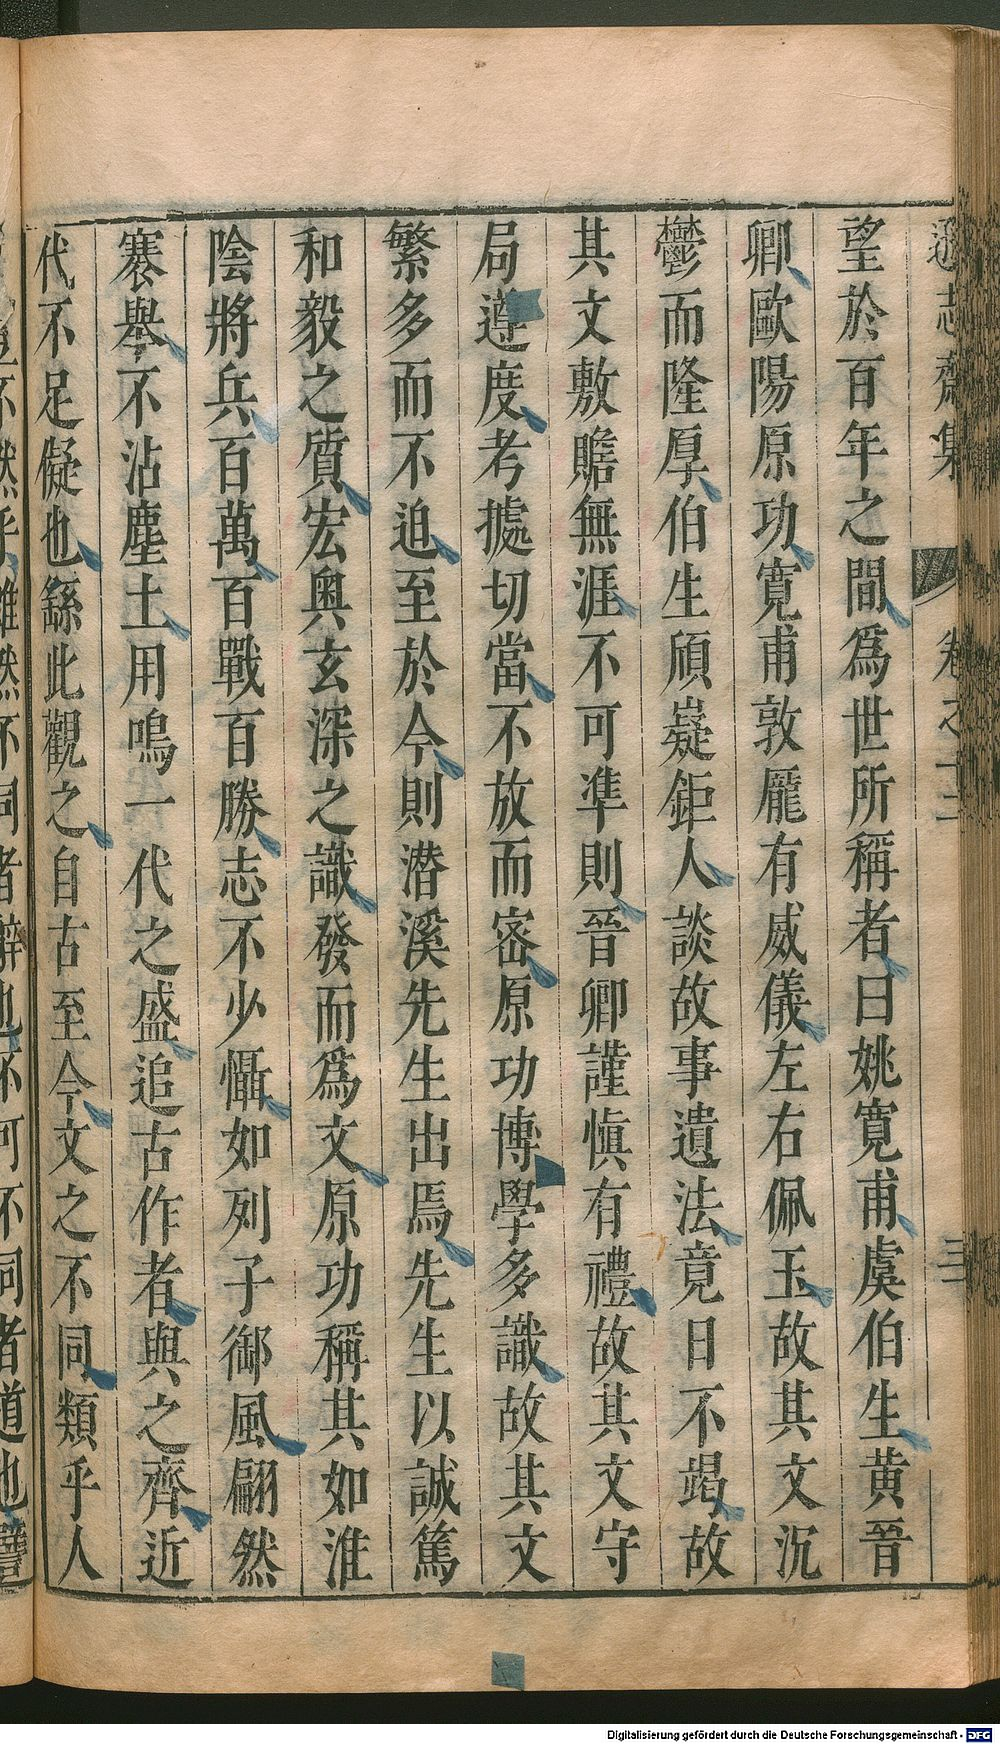 遜志齋集 卷之十二 三
望於百年之間爲世所稱者曰姚寬甫虞伯生黄晉
卿歐陽原功寛甫敦龎有威儀左右佩玉故其文沉
鬱而隆厚伯生頎嶷鉅人談故事遺法竟日不竭故
其文敷贍無涯不可準則晉卿謹愼有禮故其文守
局遵度考據切當不放而密原功博學多識故其文
繁多而不迫至於今則潜溪先生出焉先生以誠篤
和毅之質宏奥玄深之識發而爲文原功稱其如淮
陰將兵百萬百戰百勝志不少懾如列子御風翩然
褰舉不沾塵土用鳴一代之盛追古作者與之齊近
代不足儗也繇此觀之自古至今文之不同類乎人
不然乎雖然不同者辭也不可不同者道也譬
Digitalisierung gefördert durch die Deutsche Forschungsgemeinschaft - DFG